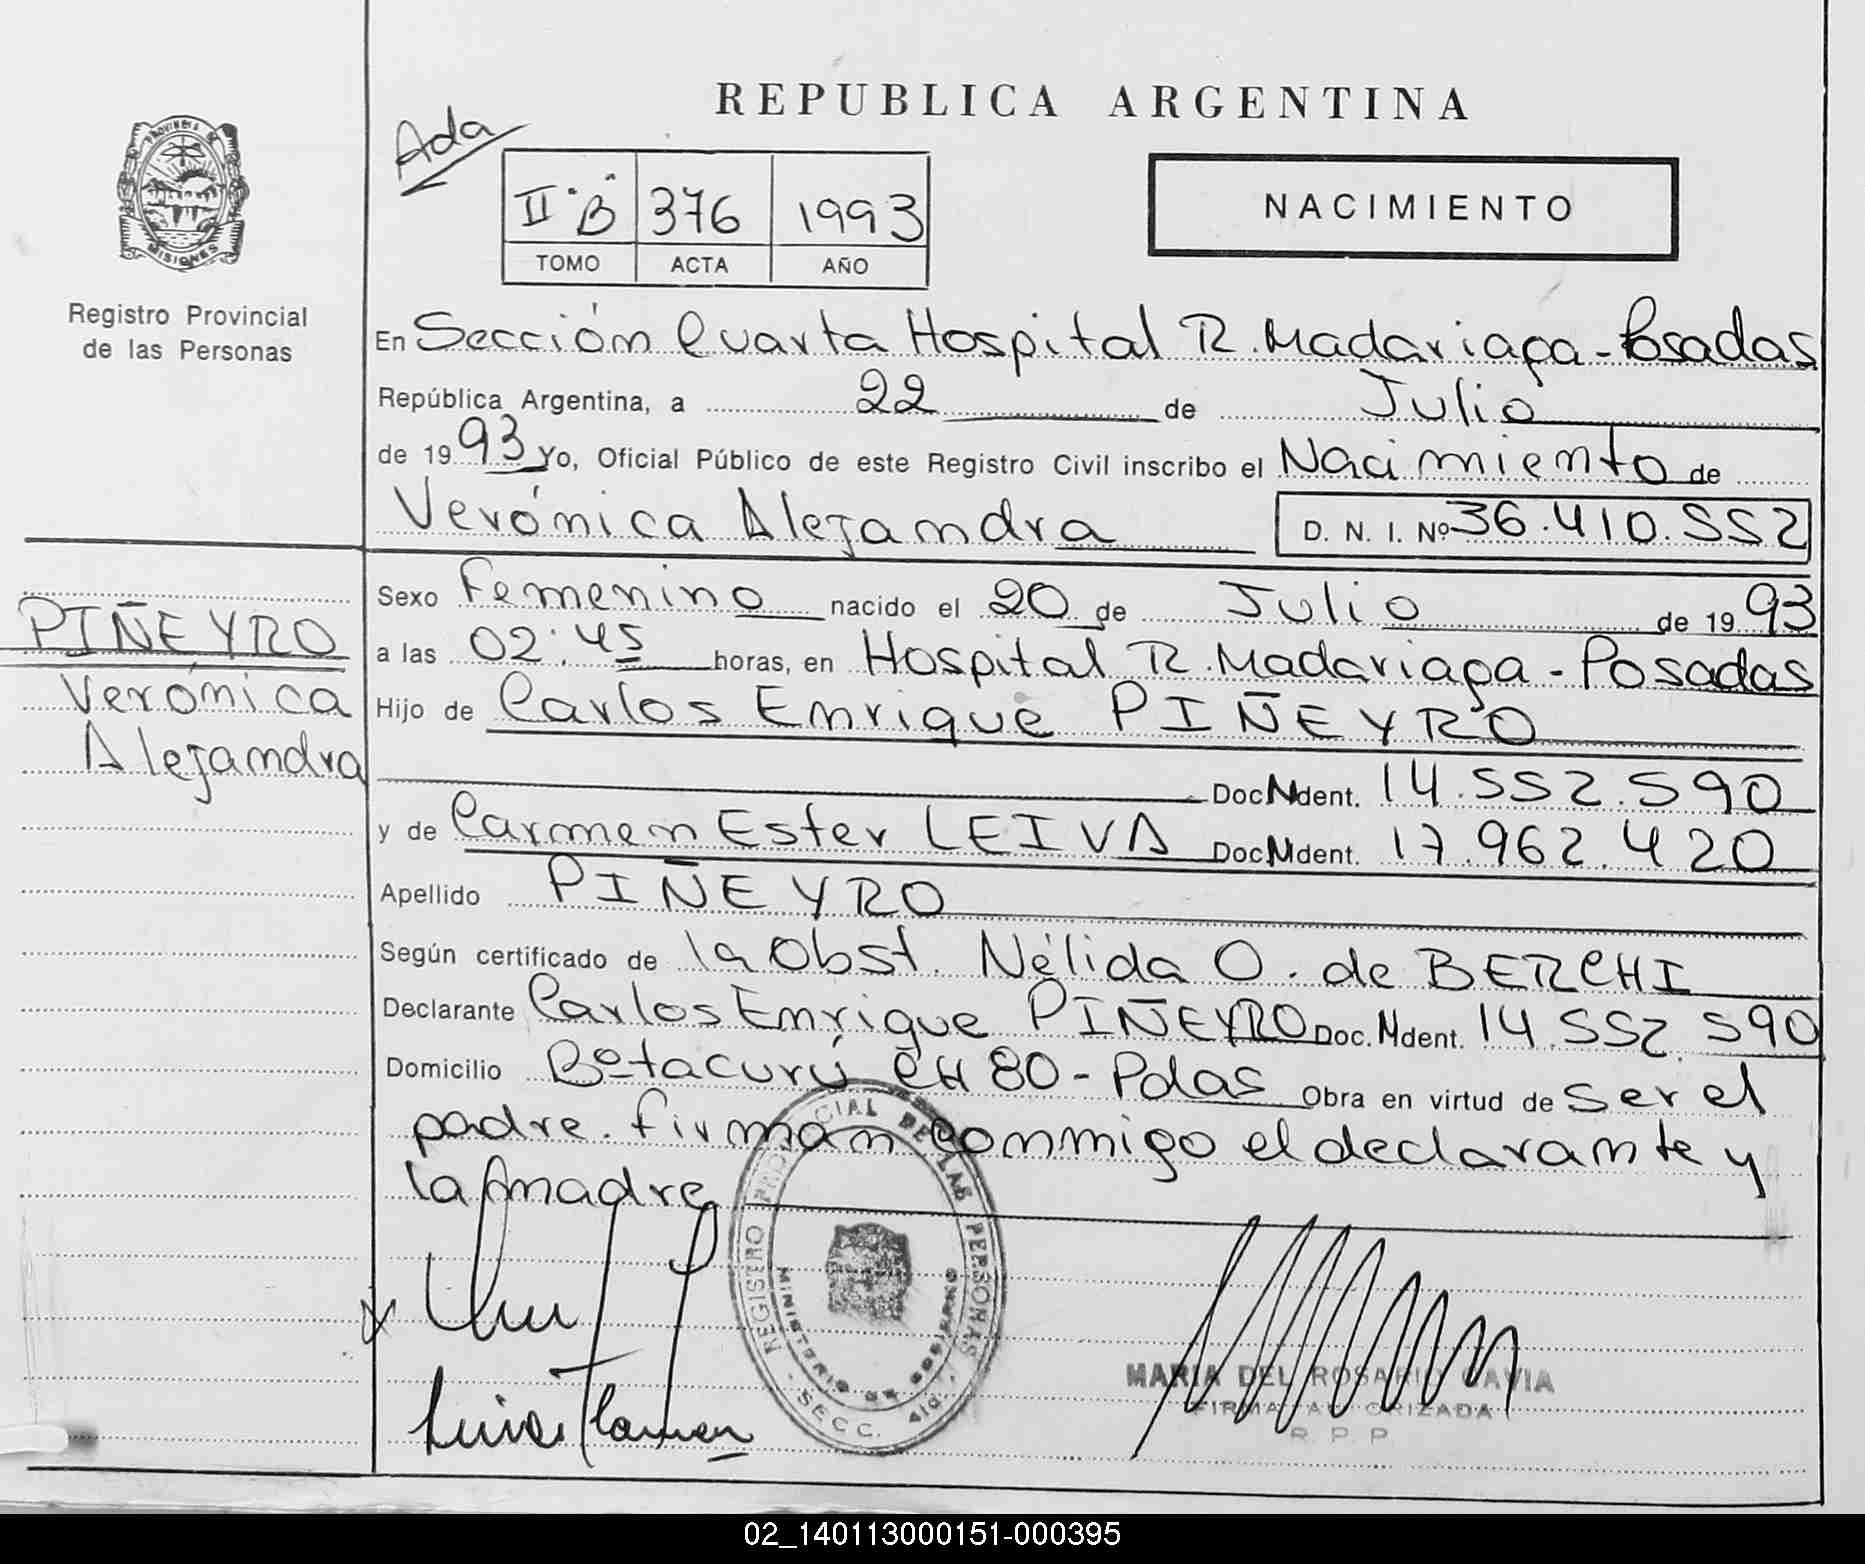 REPUBLICA ARGENTINA
Ada
II "B" 376 1993
TOMO ACTA AÑO
NACIMIENTO
PROVINCIA DE
MISIONES
Registro Provincial
de las Personas
En Sección Cuarta Hospital R. Madariaga - Posadas
República Argentina, a 22 de Julio
de 1993 Yo, Oficial Público de este Registro Civil inscribo el Nacimiento de
Verónica Alejandra D. N. I. Nº 36.410.552
PIÑEYRO
Verónica
Alejandra
Sexo Femenino nacido el 20 de Julio de 1993
a las 02:45 horas, en Hospital R. Madariaga - Posadas
Hijo de Carlos Enrique PIÑEYRO
Doc. Ident. 14.552.590
y de Carmen Ester LEIVA Doc. Ident. 17.962.420
Apellido PIÑEYRO
Según certificado de la Obst. Nélida O. de BERCHI
Declarante Carlos Enrique PIÑEYRO Doc. Ident. 14.552.590
Domicilio Bº Itacurú CH 80 - Pdas Obra en virtud de ser el
padre. firman conmigo el declarante y
la madre
REGISTRO PROVINCIAL DE LAS PERSONAS
MINISTERIO DE GOBIERNO
SECC. 4ta.
MARIA DEL ROSARIO GAVIA
FIRMA AUTORIZADA
R. P. P
02_140113000151-000395